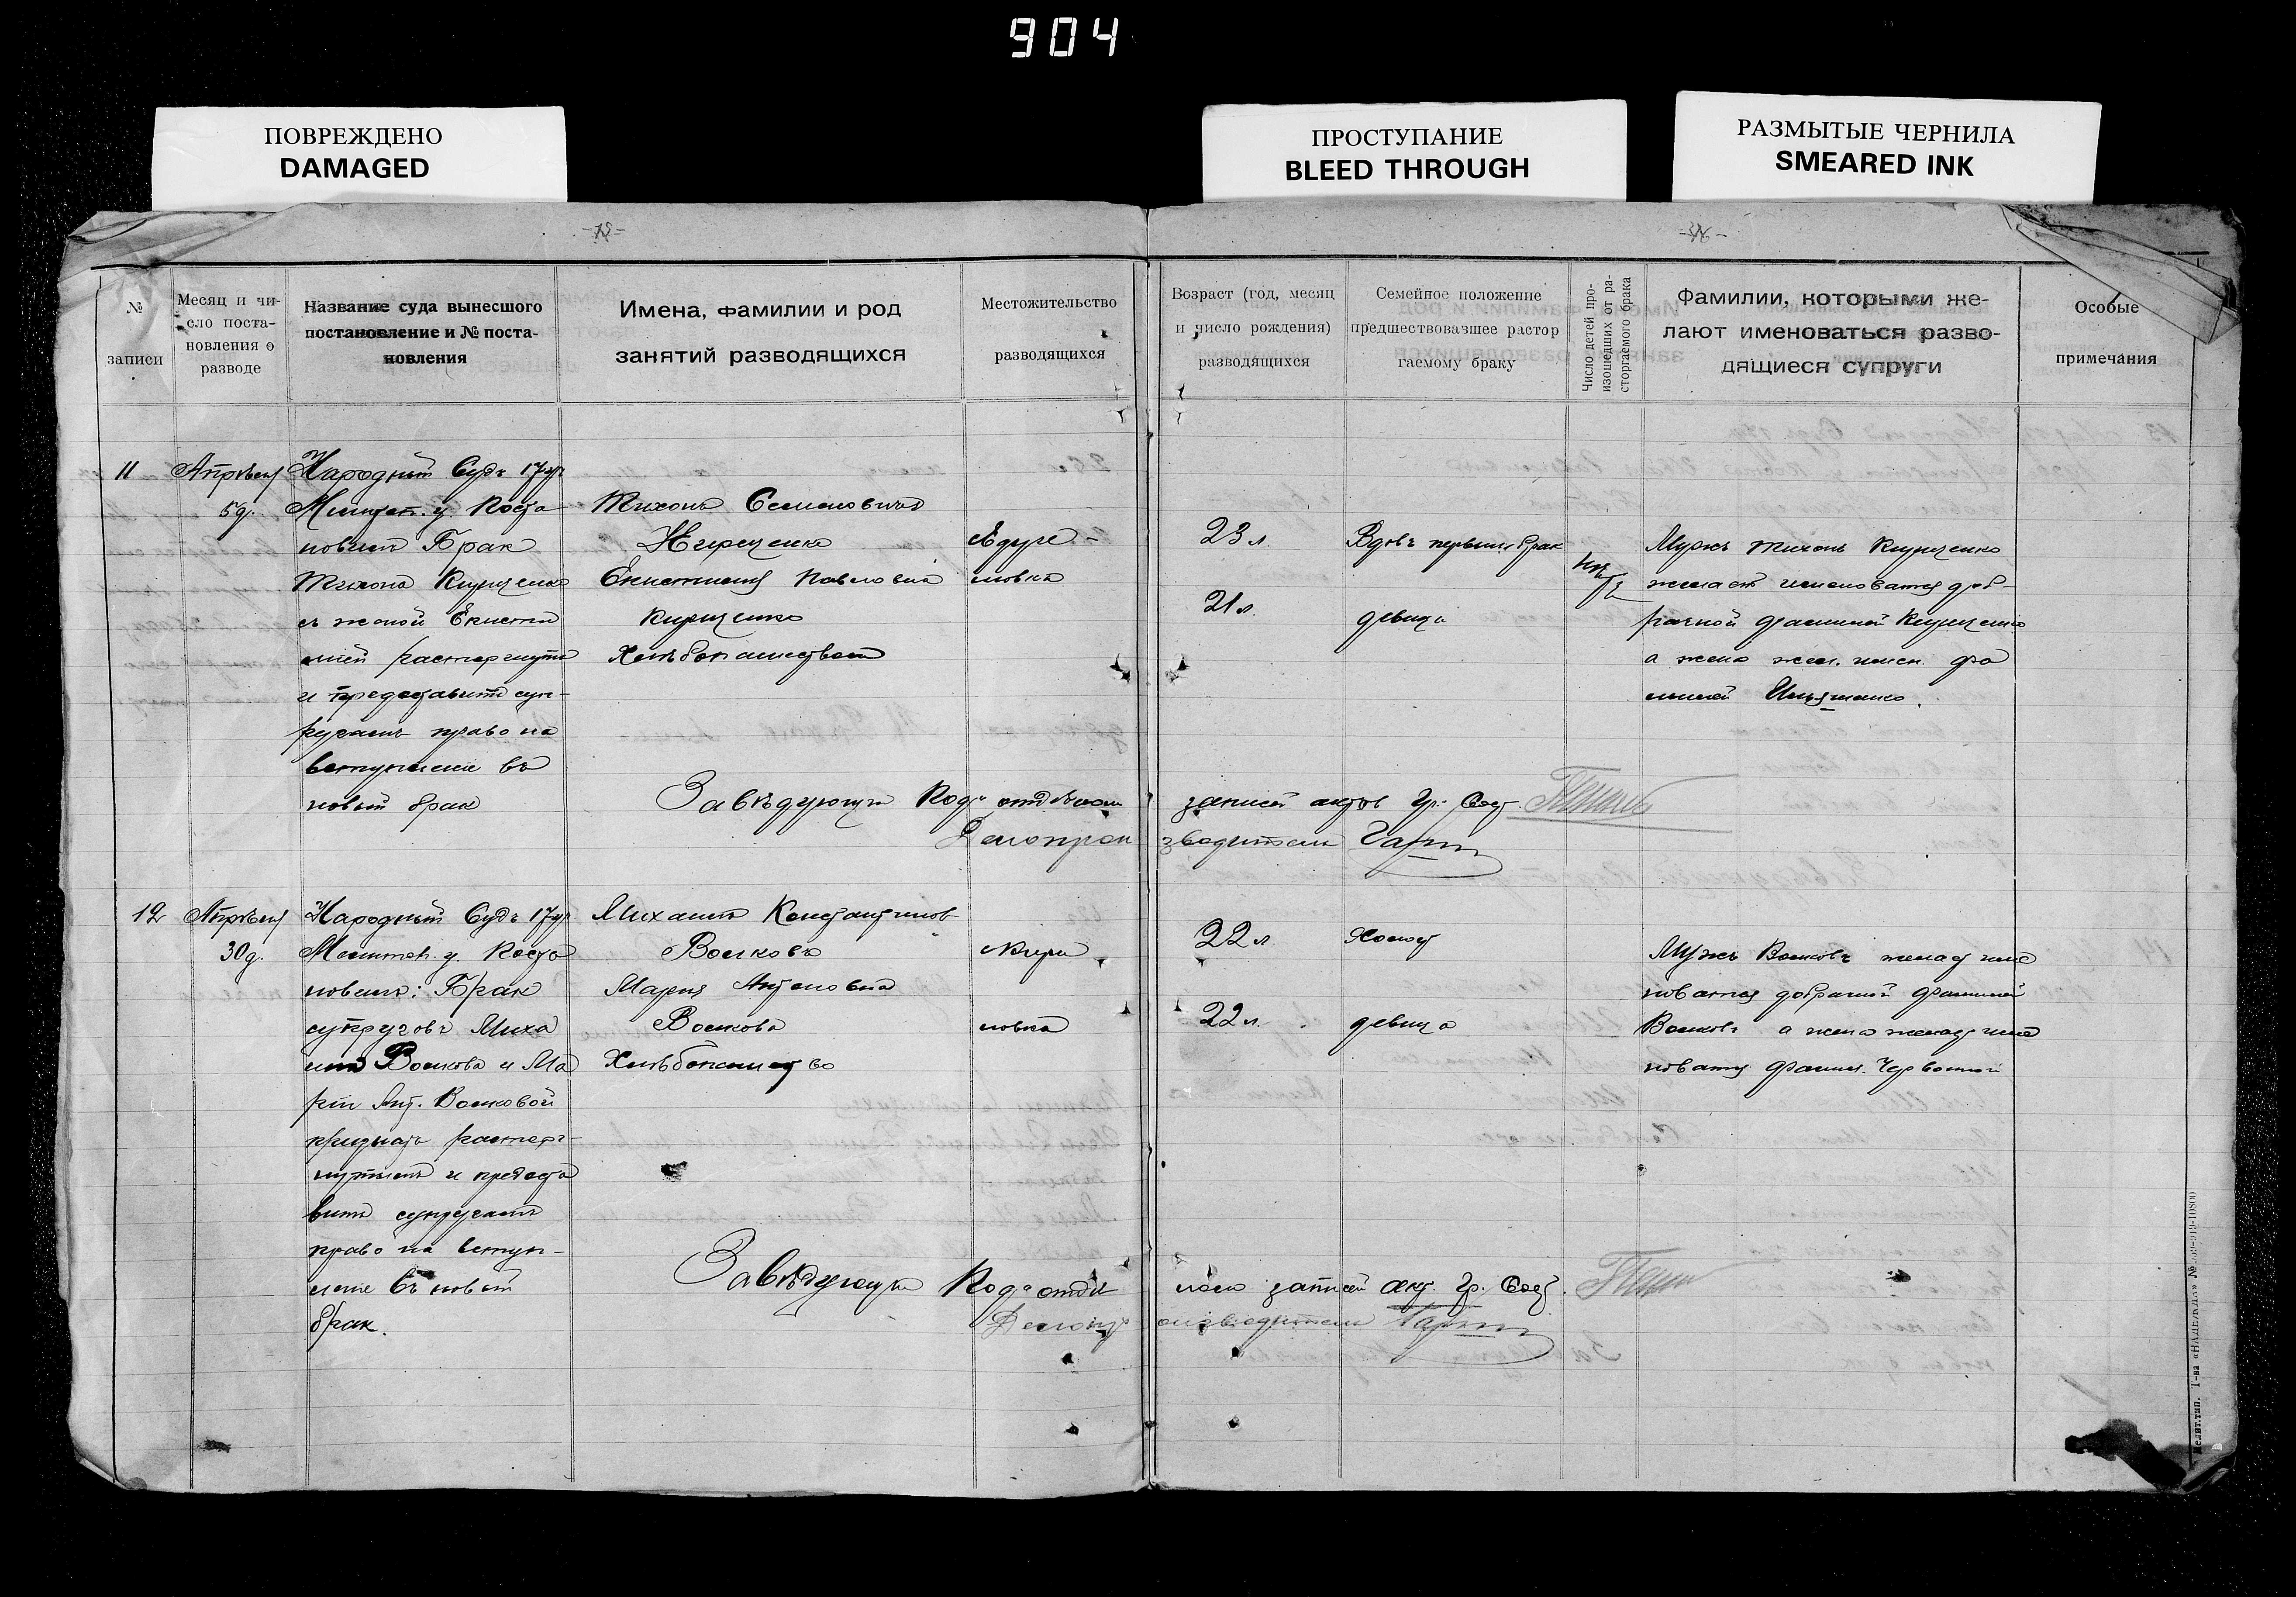 904
ПОВРЕЖДЕНО
DAMAGED
ПРОСТУПАНИЕ
BLEED THROUGH
РАЗМЫТЫЕ ЧЕРНИЛА
SMEARED INK
№
записи
Месяц и чи-
сло поста-
новления о
разводе
Название суда вынесшого
постановление и № поста-
новления
Имена, фамилии и род
занятий разводящихся
Местожительство
разводящихся
Возраст (год, месяц
и число рождения)
разводящихся
Семейное положение
предшествовавшее растор
гаемому браку
Число детей про-
изошедших от ра-
сторгаемого брака
Фамилии, которыми же-
лают именоваться разво-
дящиеся супруги
Особые
примечания
11
Апрѣля
5 д.
Народный Судъ 17 уч
Мелитоп. у. Поста
новилъ Брак
Тихона
съ женой
расторгнуть
и предоставить суп-
ругамъ право на
вступление въ
новый брак
Тихонъ Семеновичъ
Павловна
Хлѣбопашество
23 л.
21 л.
Вдовъ первый брак
девица
нѣтъ
Мужъ Тихонъ
желаетъ именоваться доб-
рачной фамилией
а жена жел. имен. фа
милией
Завѣдующий Под отдѣлом
записей актов Гр. Сост.
Делопрои
зводитель
12
Апрѣля
30 д.
Народный Судъ 17 уч
Мелитоп. у. Поста
новилъ: Брак
супругов Миха
ила Волкова и Ма
рии Ант. Волковой
признать расторг-
нутымъ и предоста
вить супругамъ
право на вступ-
ление въ новый
брак.
Михаилъ Константинов
Волковъ
Мария Антоновна
Волкова
Хлѣбопашество
Кири
ловка
22 л.
22 л.
Холост
девица
Мужъ Волковъ желает име
новатся добрачной фамилией
Волковъ а жена желает име
новатся фамил. Червонной
Завѣдующий Под отдѣ
лом записей акт. Гр. Сост.
Делопр
оизводитель